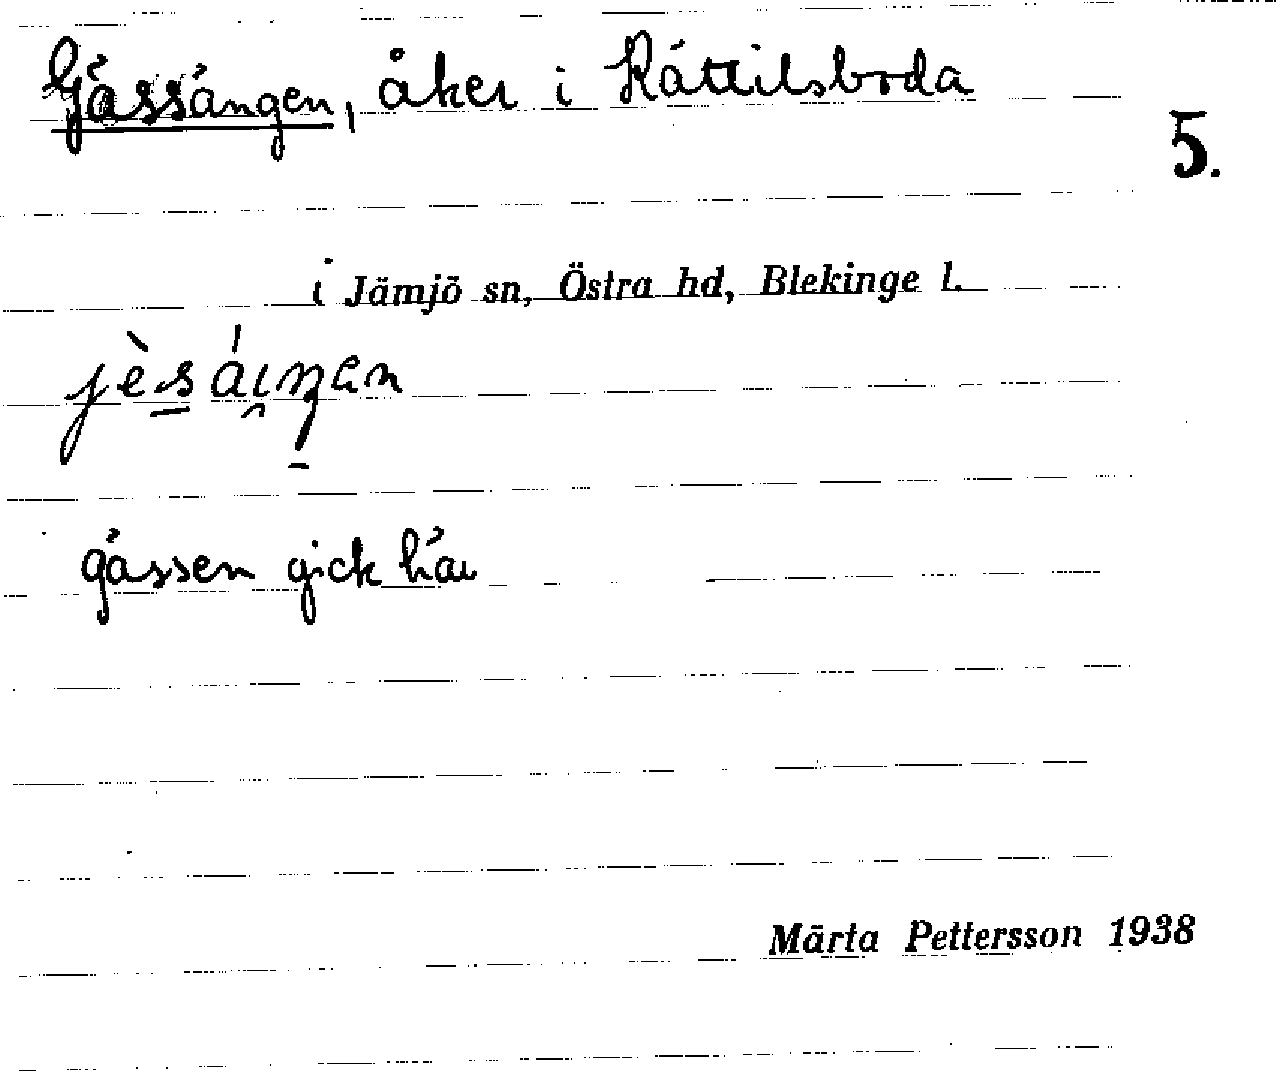 Gässängen, åker i Rättilsboda
5.
i Jämjö sn, Östra hd, Blekinge l.
gässen gick här
Märta Pettersson 1938